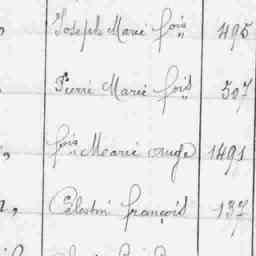 Joseph Marie fois 495
Pierre Marie fois 507
fois Marie ange 1491
Célestin françois 137